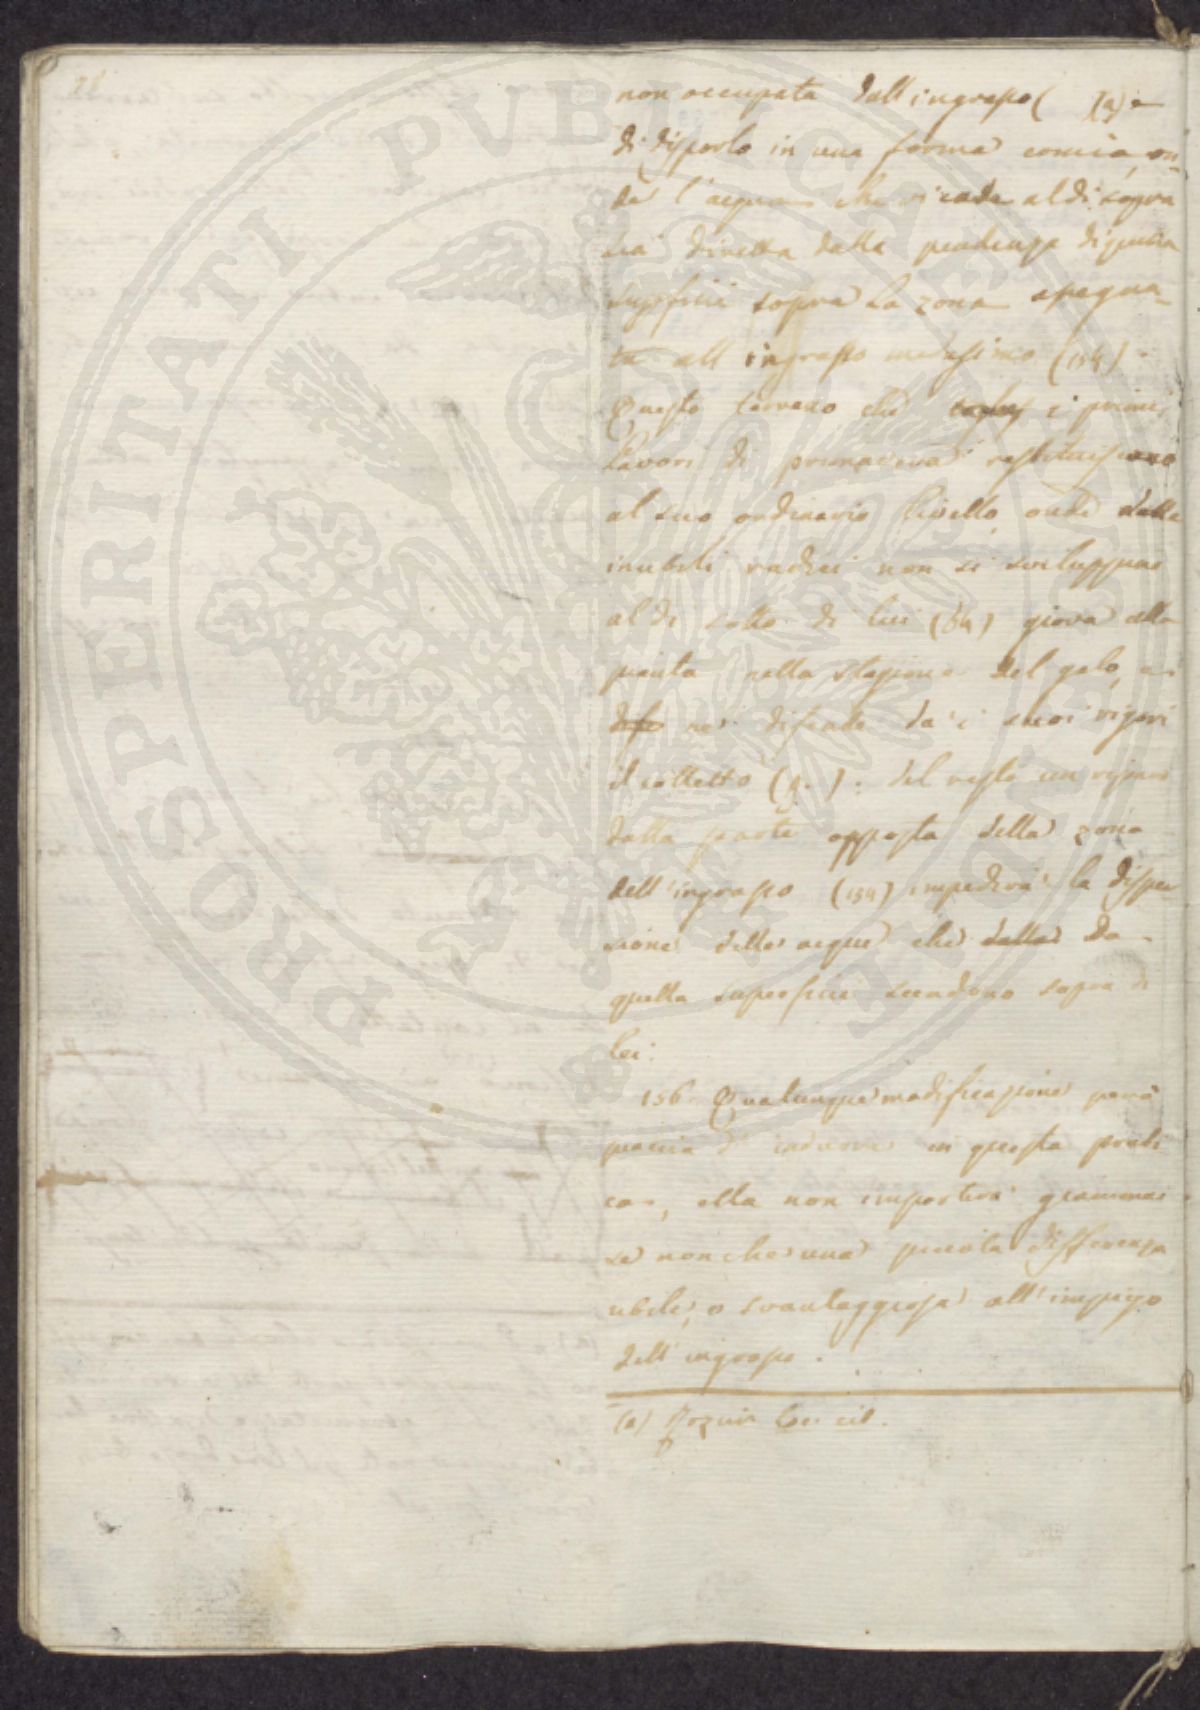 78
PROSPERITATI PUBLICAE
non occupata dall'ingrasso ( )(a) e
di disporlo in una forma conica, on
de l'acqua che vi cade al di sopra
sia diretta dalla pendenza di questa
superficie sopra la zona assegna-
ta all'ingrasso medesimo (154).
Questo terreno che i primi
lavori di primavera restituiscono
al suo ordinario livello, onde dalle
inutili radici non si sviluppino
al di sotto di lui (54) giova alla
pianta nella stagione del gelo, e
ne difende da i suoi rigori
il colletto ( ). Del resto un riparo
dalla parte opposta della zona
dell'ingrasso (154) impedirà la disper
sione delle acque che dalla da
quella superficie scendono sopra di
lei.
156. Qualunque modificazione però
piaccia d'indurre in questa prati
ca, ella non importerà giammai
se non che una piccola differenza
utile, o svantaggiosa all'impiego
dell'ingrasso.
(a) Rozier loc. cit.